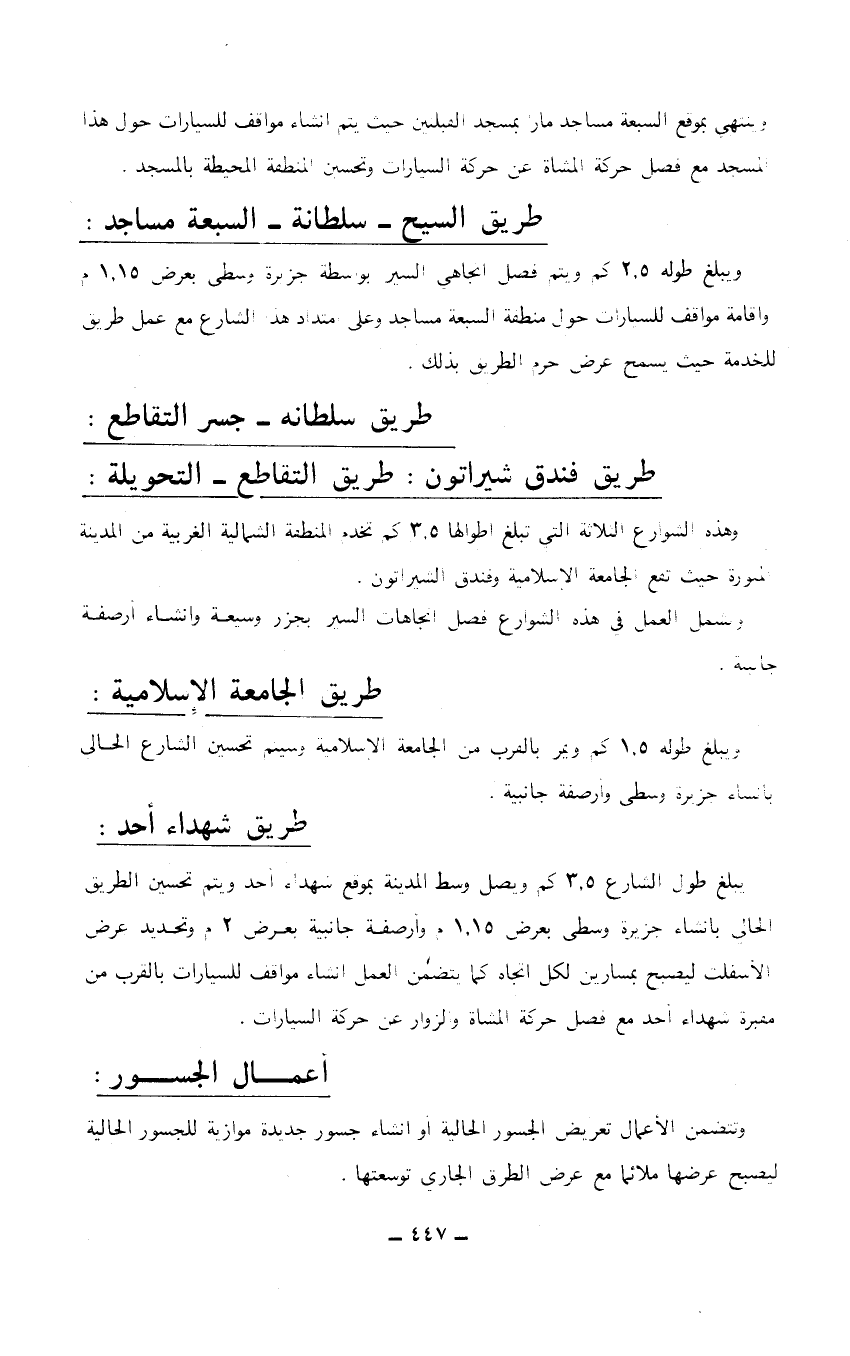 وينتهي بموقع السبعة مساجد مارا بمسجد القبلتين حيث يتم انشاء مواقف للسيارات حول هذا
المسجد مع فصل حركة المشاة عن حركة السيارات وتحسين المنطقة المحيطة بالمسجد .
طريق السيح ـ سلطانة ـ السبعة مساجد :
ويبلغ طوله ٢,٥ كم ويتم فصل اتجاهي السير بواسطة جزيرة وسطى بعرض ١,١٥ م
واقامة مواقف للسيارات حول منطقة السبعة مساجد وعلى امتداد هذا الشارع مع عمل طريق
للخدمة حيث يسمح عرض حرم الطريق بذلك .
طريق سلطانه ـ جسر التقاطع :
طريق فندق شيراتون : طريق التقاطع ـ التحويلة :
وهذه الشوارع الثلاثة التي تبلغ اطوالها ٣,٥ كم تخدم المنطقة الشمالية الغربية من المدينة
المنورة حيث تقع الجامعة الاسلامية وفندق الشيراتون .
ويشمل العمل في هذه الشوارع فصل اتجاهات السير بجزر وسيعة وانشاء أرصفة
جانبية .
طريق الجامعة الإسلامية :
ويبلغ طوله ١,٥ كم ويمر بالقرب من الجامعة الاسلامية وسيتم تحسين الشارع الحالى
بانشاء جزيرة وسطى وأرصفة جانبية .
طريق شهداء أحد :
يبلغ طول الشارع ٣,٥ كم ويصل وسط المدينة بموقع شهداء أحد ويتم تحسين الطريق
الحالي بانشاء جزيرة وسطى بعرض ١,١٥ م وأرصفة جانبية بعرض ٢ م وتحديد عرض
الأسفلت ليصبح بمسارين لكل اتجاه كما يتضمن العمل انشاء مواقف للسيارات بالقرب من
مقبرة شهداء أحد مع فصل حركة المشاة والزوار عن حركة السيارات .
أعمـــال الجســـور :
وتتضمن الأعمال تعريض الجسور الحالية أو انشاء جسور جديدة موازية للجسور الحالية
ليصبح عرضها ملائما مع عرض الطرق الجاري توسعتها .
ـ ٤٤٧ ـ